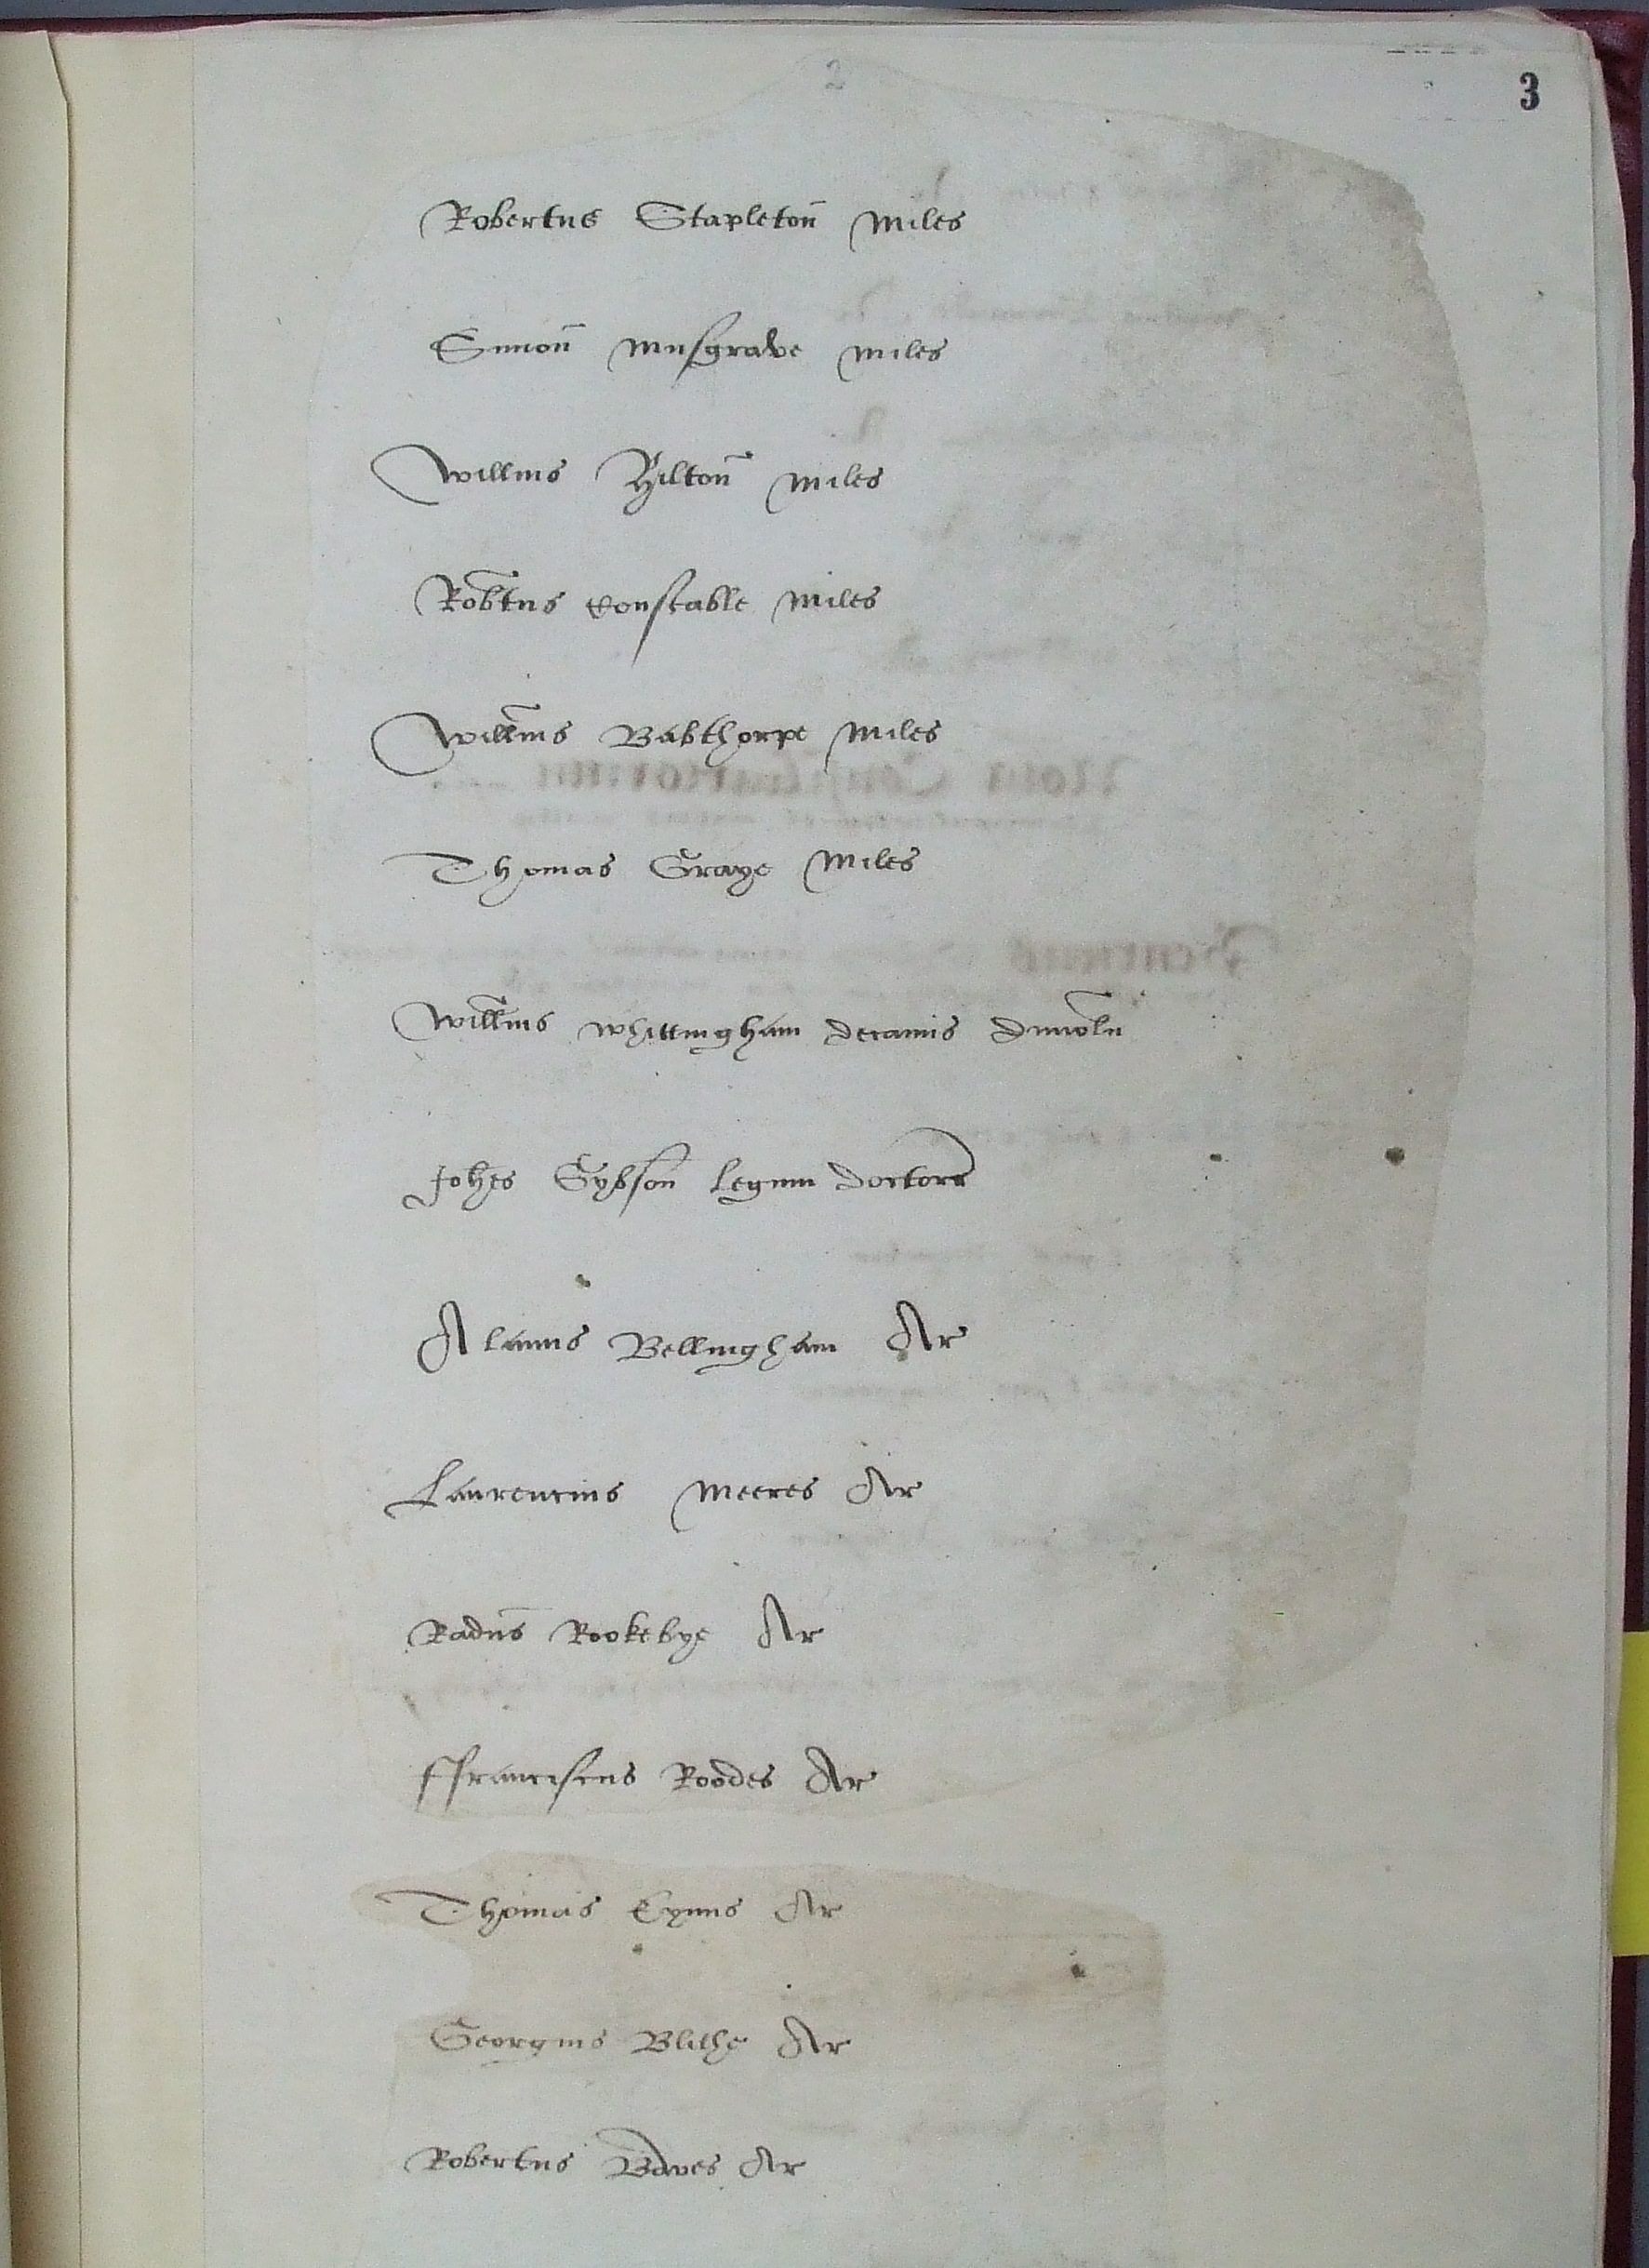 2
3
Robertus Stapleton miles
Simon Musgrave miles
Willms Hilton miles
Robtus Constable miles
Willms Babthorpe miles
Thomas Graye miles
Willms Whittingham decanus Dunolm
Johes Gybson legum doctor
Alanus Bellingham Ar
Laurencius Meeres Ar
Radus Rookebye Ar
Ffranciscus Roodes Ar
Thomas Eynns Ar
Georgius Blithe Ar
Robertus Ar